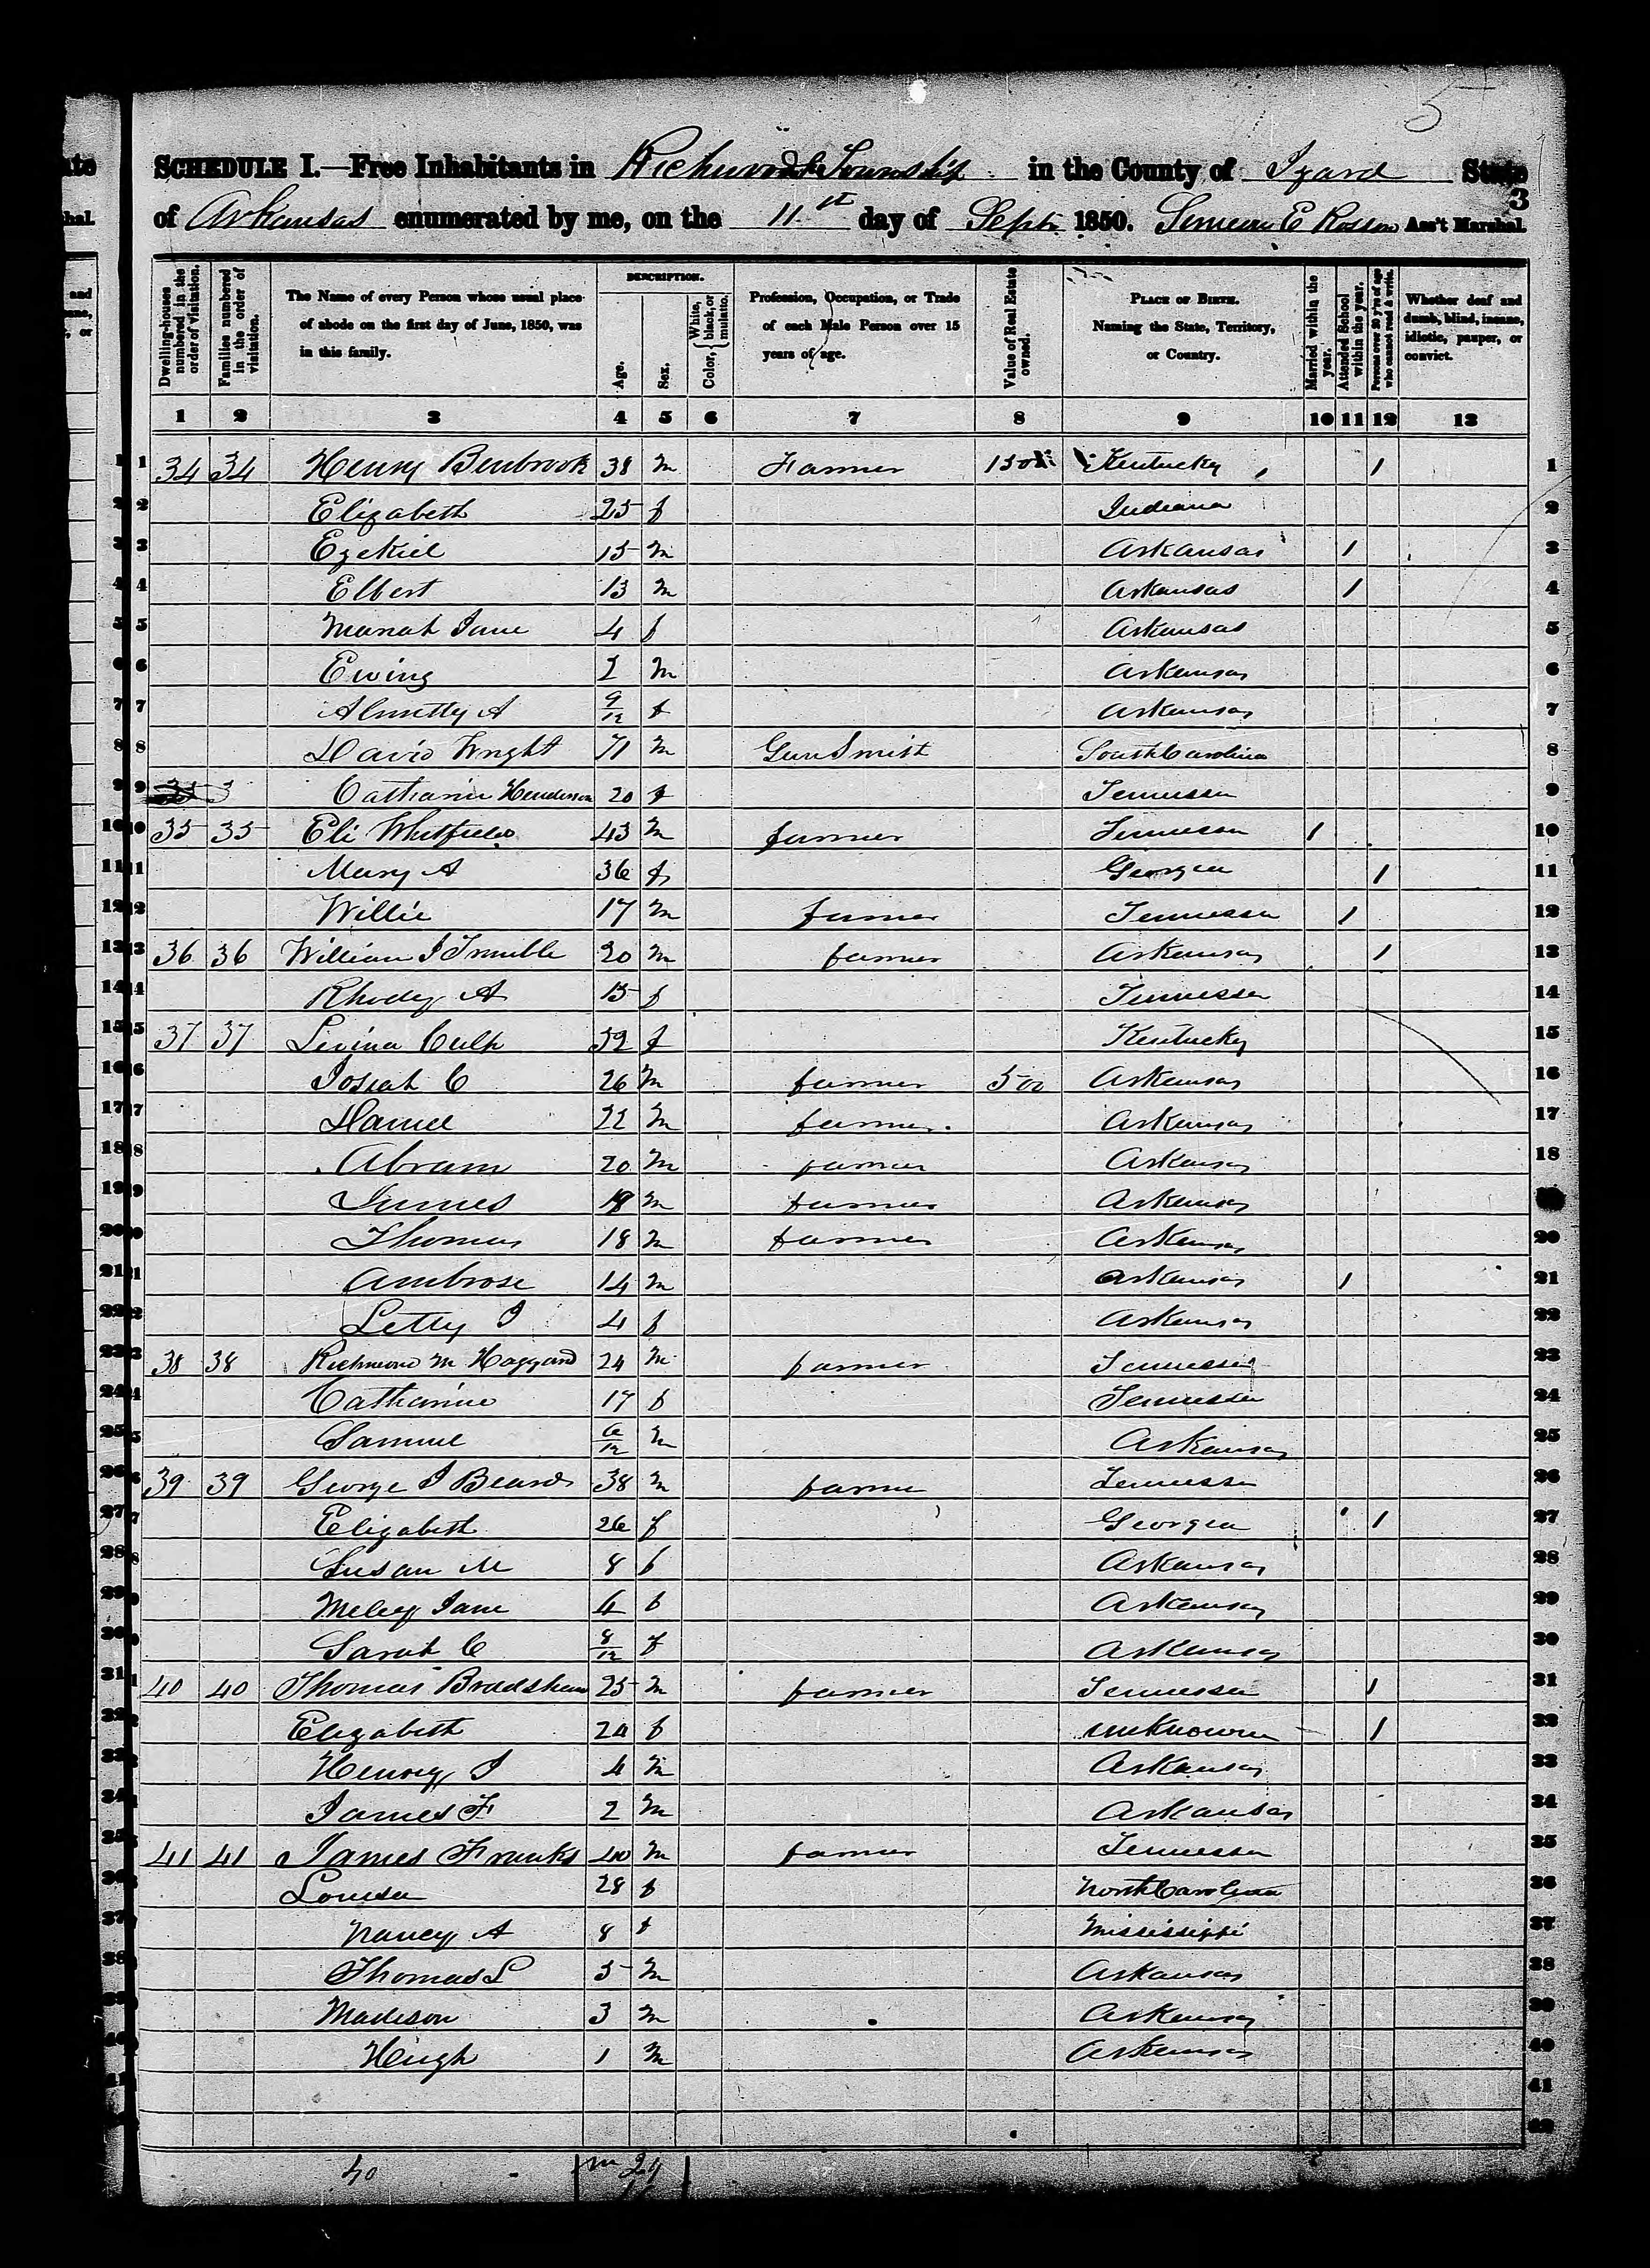 5
SCHEDULE I.—Free Inhabitants in Richwoods Township in the County of Izard State
3
of Arkansas enumerated by me, on the 11st day of Sept. 1850. E Ass't Marshal.
Dwelling-houses numbered in the order of visitation.
Families numbered in the order of visitation.
The Name of every Person whose usual place of abode on the first day of June, 1850, was in this family.
DESCRIPTION.
Age.
Sex.
Color, { White, black, or mulatto.
Profession, Occupation, or Trade of each Male Person over 15 years of age.
Value of Real Estate owned.
PLACE OF BIRTH. Naming the State, Territory, or Country.
Married within the year.
Attended School within the year.
Persons over 20 y'rs of age who cannot read & write.
Whether deaf and dumb, blind, insane, idiotic, pauper, or convict.
1 2 3 4 5 6 7 8 9 10 11 12 13
1 34 34 Henry Benbrook 38 m Farmer Kentucky 1 1
2 Elizabeth 25 f Indiana 2
3 Ezekiel 15 m Arkansas 1 3
4 Elbert 13 m Arkansas 1 4
5 Jane 4 f Arkansas 5
6 Ewing 2 m Arkansas 6
7 A 9/12 f Arkansas 7
8 David Wright 71 m Gun Smith South Carolina 8
9 Catharine Henderson 20 f Tennessee 9
10 35 35 Eli Whitfield 43 m farmer Tennessee 1 10
11 Mary A 36 f Georgia 1 11
12 Willie 17 m farmer Tennessee 1 12
13 36 36 William J Trimble 20 m farmer Arkansas 1 13
14 Rhody A 15 f Tennessee 14
15 37 37 Levina Culp 52 f Kentucky 15
16 Josiah C 26 m farmer 500 Arkansas 16
17 Daniel 22 m farmer Arkansas 17
18 Abram 20 m farmer Arkansas 18
19 James m farmer Arkansas
20 Thomas 18 m farmer Arkansas 20
21 Ambrose 14 m Arkansas 1 21
22 Letty J 4 f Arkansas 22
23 38 38 Richmond M Haggard 24 m farmer Tennessee 23
24 Catharine 17 f Tennessee 24
25 Samuel 6/12 m Arkansas 25
26 39 39 George J Beard 38 m farmer Tennessee 26
27 Elizabeth 26 f Georgia 1 27
28 Susan M 8 f Arkansas 28
29 Jane f Arkansas 29
30 Sarah C 8/12 f Arkansas 30
31 40 40 Thomas Bradshaw 25 m farmer Tennessee 1 31
32 Elizabeth 24 f unknown 1 32
33 Henry J 4 m Arkansas 33
34 James F 2 m Arkansas 34
35 41 41 James Franks 40 m farmer Tennessee 35
36 Louisa 28 f North Carolina 36
37 Nancy A 8 f Mississippi 37
38 Thomas L 5 m Arkansas 38
39 Madison 3 m Arkansas 39
40 Hugh 1 m Arkansas 40
41
42
40 m 24